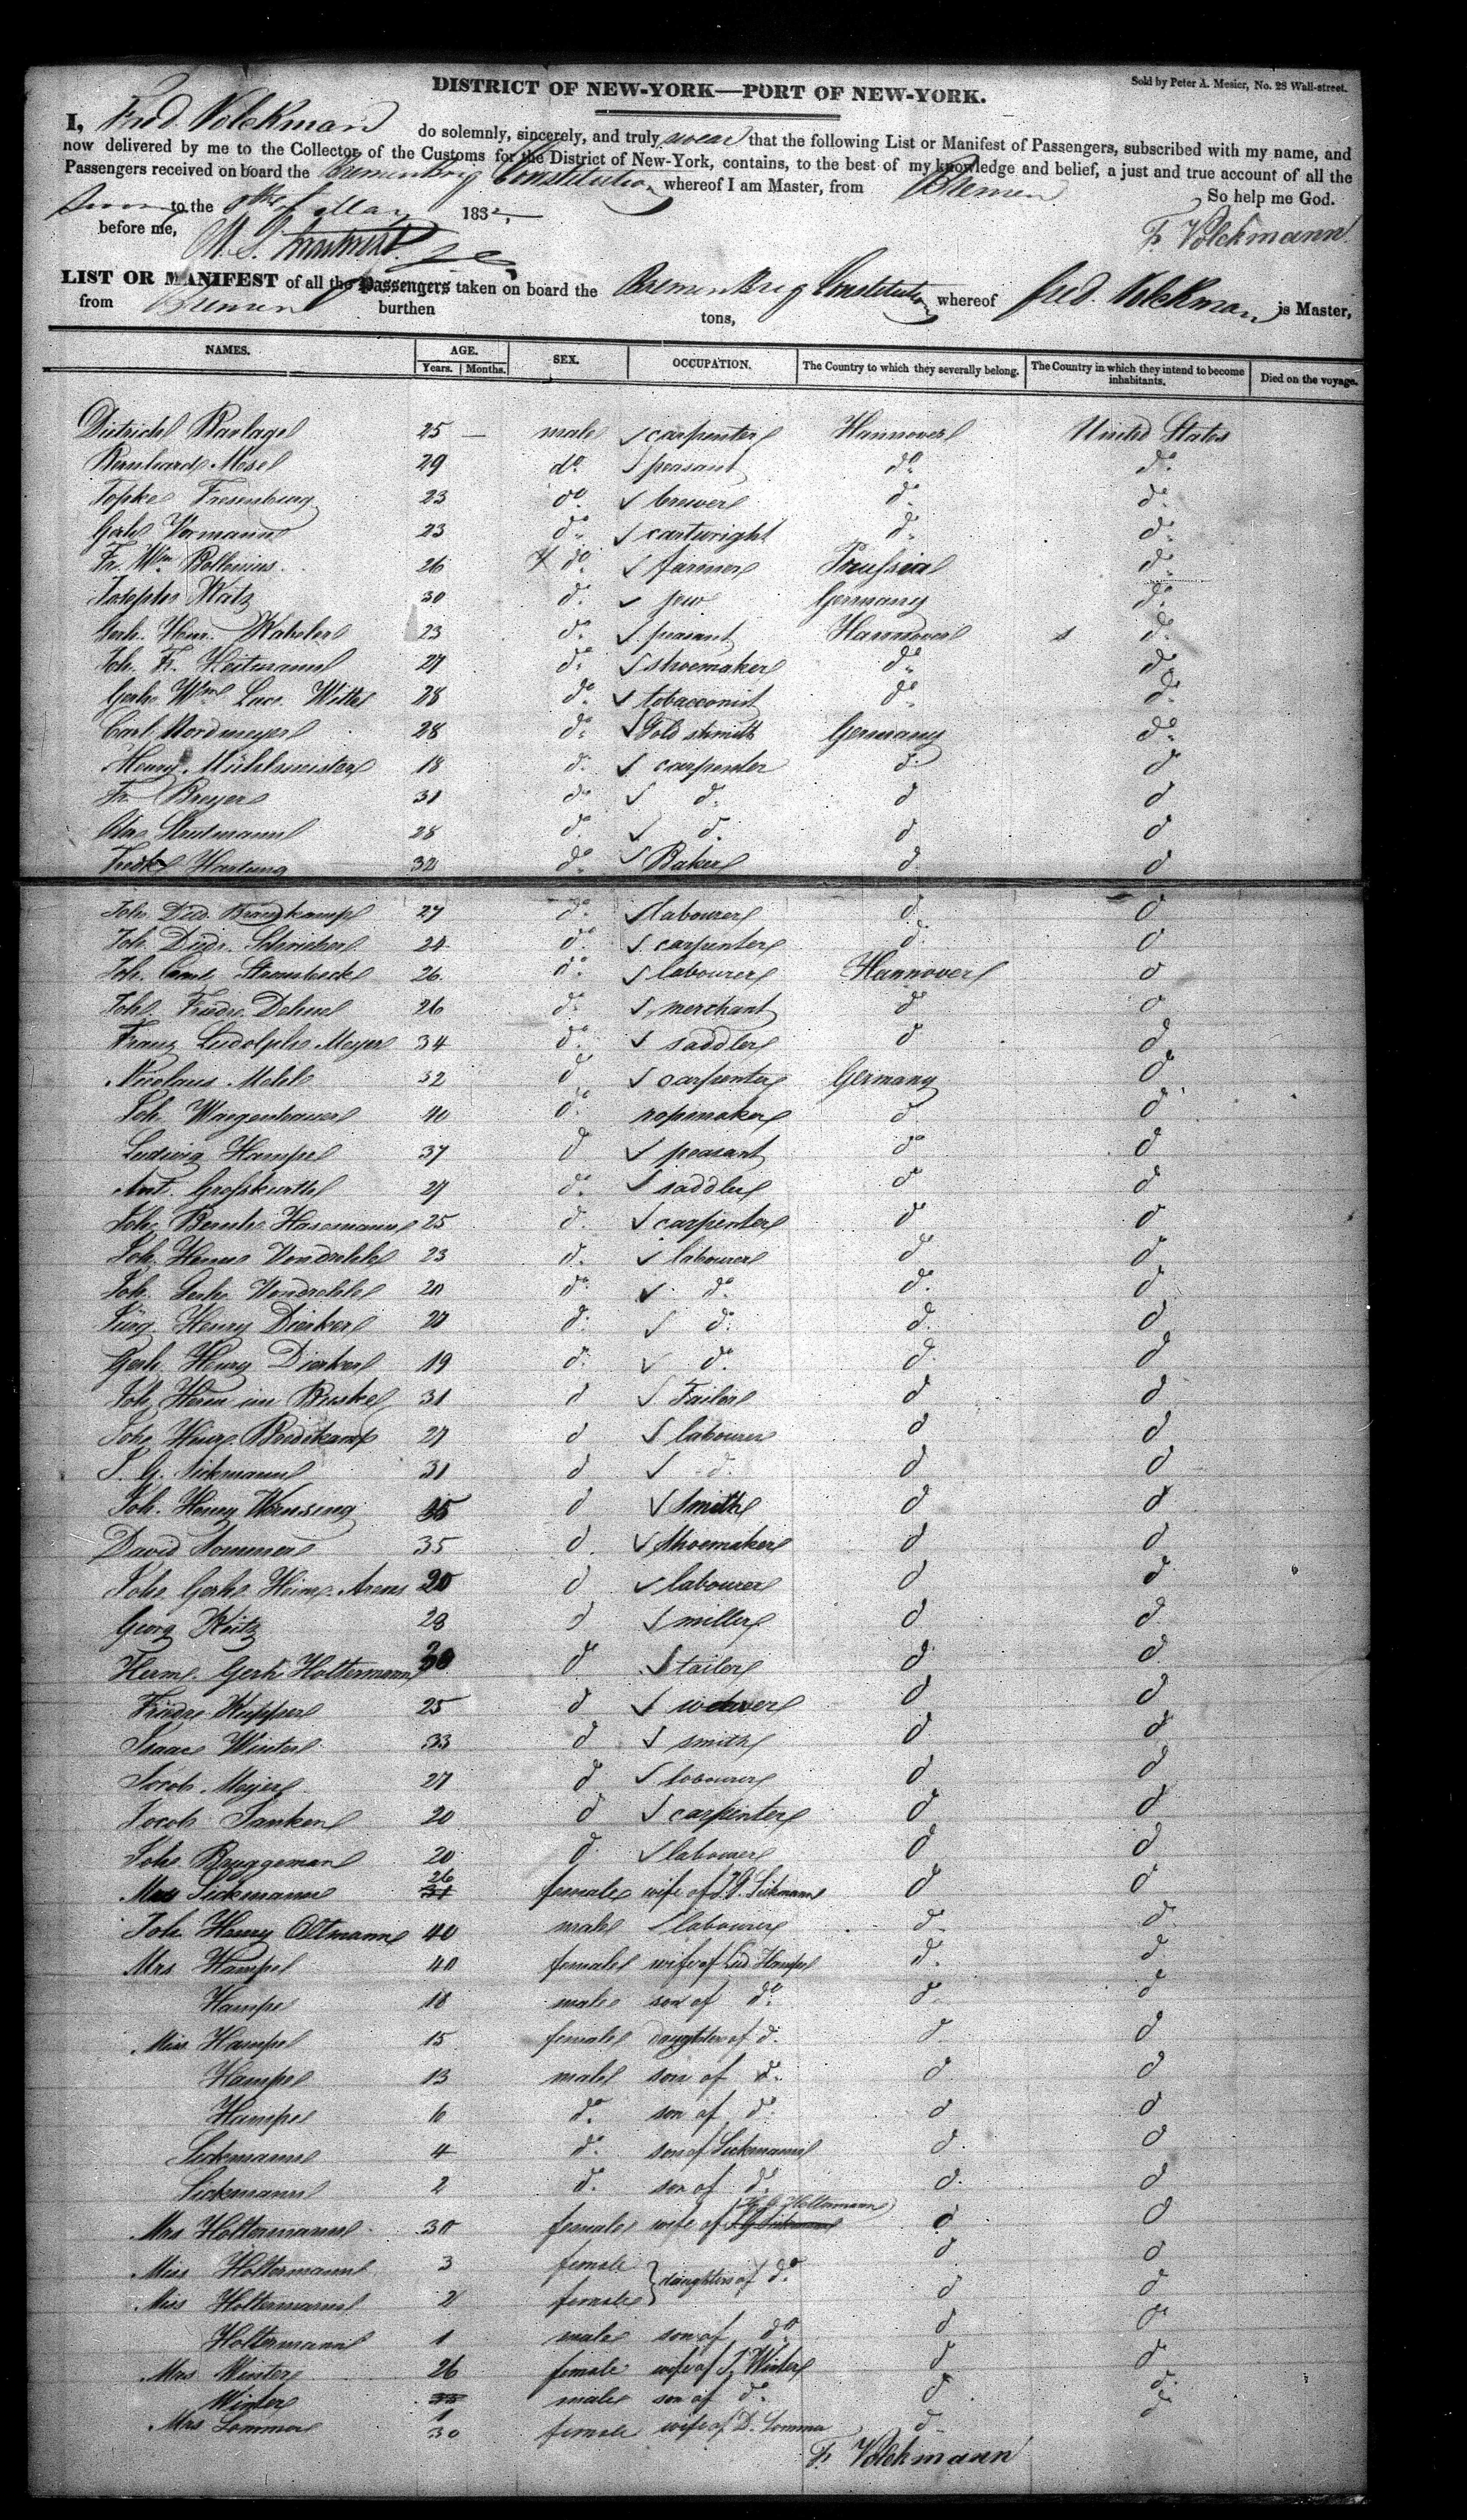 DISTRICT OF NEW-YORK—PORT OF NEW-YORK.
Sold by Peter A. Mesier, No. 28 Wall-street.
I, Fred Volckman do solemnly, sincerely, and truly swear that the following List or Manifest of Passengers, subscribed with my name, and
now delivered by me to the Collector of the Customs for the District of New-York, contains, to the best of my knowledge and belief, a just and true account of all the
Passengers received on board the Bremen Brig Constitution whereof I am Master, from Bremen
So help me God.
to the 9th of May 1832,
before me, Fr Volckmann
LIST OR MANIFEST of all the Passengers taken on board the Bremen Brig Constitution whereof Fred. Volckman is Master,
from Bremen burthen tons,
NAMES. AGE. Years. Months. SEX. OCCUPATION. The Country to which they severally belong. The Country in which they intend to become inhabitants. Died on the voyage.
Dietrich Barlage 25 — male carpenter Hannover United States
Bernhard Mosel 29 do. peasant do. do.
Topke Fresenburg 23 do. brewer do. do.
Gerh Vormann 23 do. cartwright do. do.
Fr. Wm 26 do. farmer Preussia do.
Josephs Katz 30 do. jew Germany do.
Gerh. Henr. 23 do. peasant Hannover do.
Joh. Fr. Heitmann 27 do. shoemaker do. do.
Gerh. Wm Witte 28 do. tobacconist do. do.
Carl Nordmeyer 28 do. Gold shmith Germany do.
Henry Mühlmeister 18 do. carpenter do. do
Fr. Breyer 31 do. do. do do
Strutmann 28 do. do. do do
Fredk Hartung 32 do. Baker do. do
Joh. Died. Brandkamp 27 do. labourer do. do
Joh. Diedr. Schrieber 24 do. carpenter do. do
Joh. Strausbeck 26 do. labourer Hannover do
Joh. Friedr. Dehne 26 do. merchant do do
Franz Ludolph Meyer 34 do. saddler do do
Nicolaus Mehl 32 do carpenter Germany do
Joh. Wagenbauer 40 do. ropemaker do do
Ludwig Hampe 37 do peasant do do
Ant. Grosskurth 27 do. saddler do do
Joh. Bernh. Hasemann 25 do. carpenter do do
Joh. Herm Vondrehle 23 do. labourer do do
Joh. Gerh. Vondrehle 20 do. do. do. do
Jürg. Henry Dierker 20 do. do. do. do
Gerh. Henry Dierker 19 do. do. do. do
Joh. Herm im Buske 31 do Tailor do do
Joh. Henr. Bredekamp 27 do labourer do do
J. G. Sickmann 31 do do. do do
Joh. Henry Wensing 35 do smith do do
David Sommer 35 do. shoemaker do do
Joh. Gerh. Heinr. Arens 20 do labourer do do
Georg Keitz 28 do miller do do
Herm. Gerh. Holtermann 30 do tailor do do
Friedr. Kupper 25 do weaver do do
Isaac Winter 33 do smith do do
Jacob Meyer 27 do labourer do do
Jacob Janken 20 do carpenter do do
Joh. Bruggeman 20 do. labourer do do
Mrs Sickmann 26 31 female wife of J.G. Sickmann do do
Joh. Henry Oltmann 40 male labourer do. do
Mrs Hampe 40 female wife of Lud Hampe do. do
Hampe 18 male son of do. do. do
Miss Hampe 15 female daughter of do. do. do
Hampe 13 male son of do. do do
Hampe 6 do. son of do. do do
Sickmann 4 do. son of Sickmann do. do
Sickmann 2 do. son of do. do. do
Mrs Holtermann 30 female wife of H. G. Holtermann J G Sickmann do do
Miss Holtermann 3 female do do
Miss Holtermann 2 female daughters of do. do do
Holtermann 1 male son of do. do do
Mrs Winter 26 female wife of J. Winter do do
Winter 1 male son of do. do. do
Mrs Sommer 30 female wife of D. Somme do. do
Fr. Volckmann